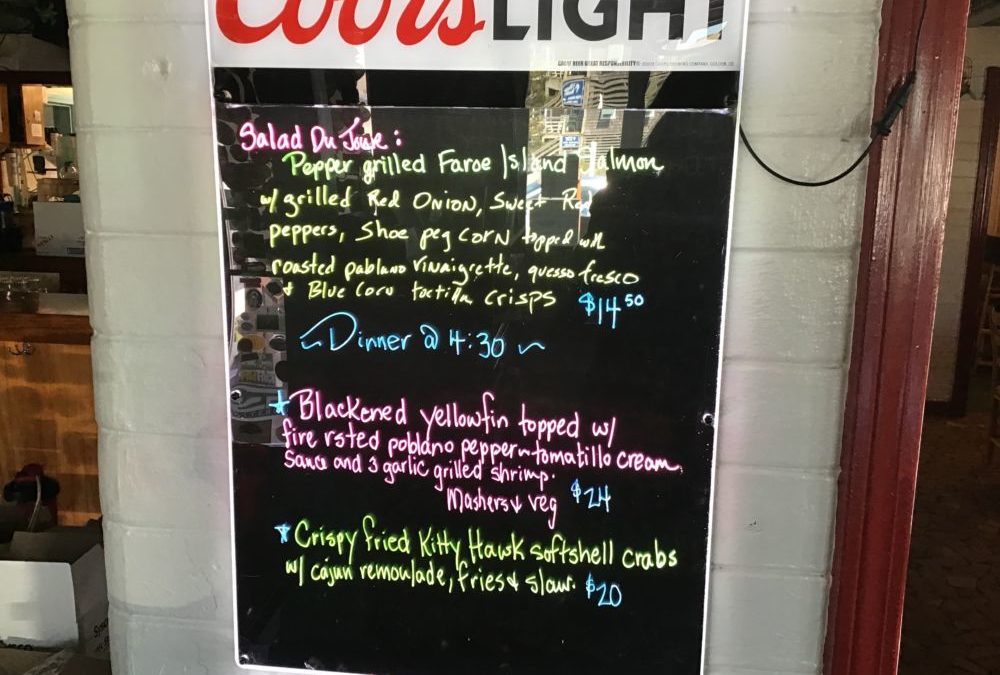 Coors LIGHT
GREAT BEER GREAT RESPONSIBILITY
Salad Du Jour:
Pepper grilled Faroe Island Salmon
w/ grilled Red ONION, Sweet Red
peppers, Shoe peg CORN topped with
roasted pablano Vinaigrette, quesso fresco
+ Blue Corn tortilla crisps $14 50
Dinner @ 4:30
Blackened yellowfin topped w/
fire rsted poblano pepper-tomatillo cream
Sauce and 3 garlic grilled shrimp.
Mashers+ veg $24
Crispy fried Kitty Hawk softshell crabs
w/ cajun remoulade, fries+ slaw. $20